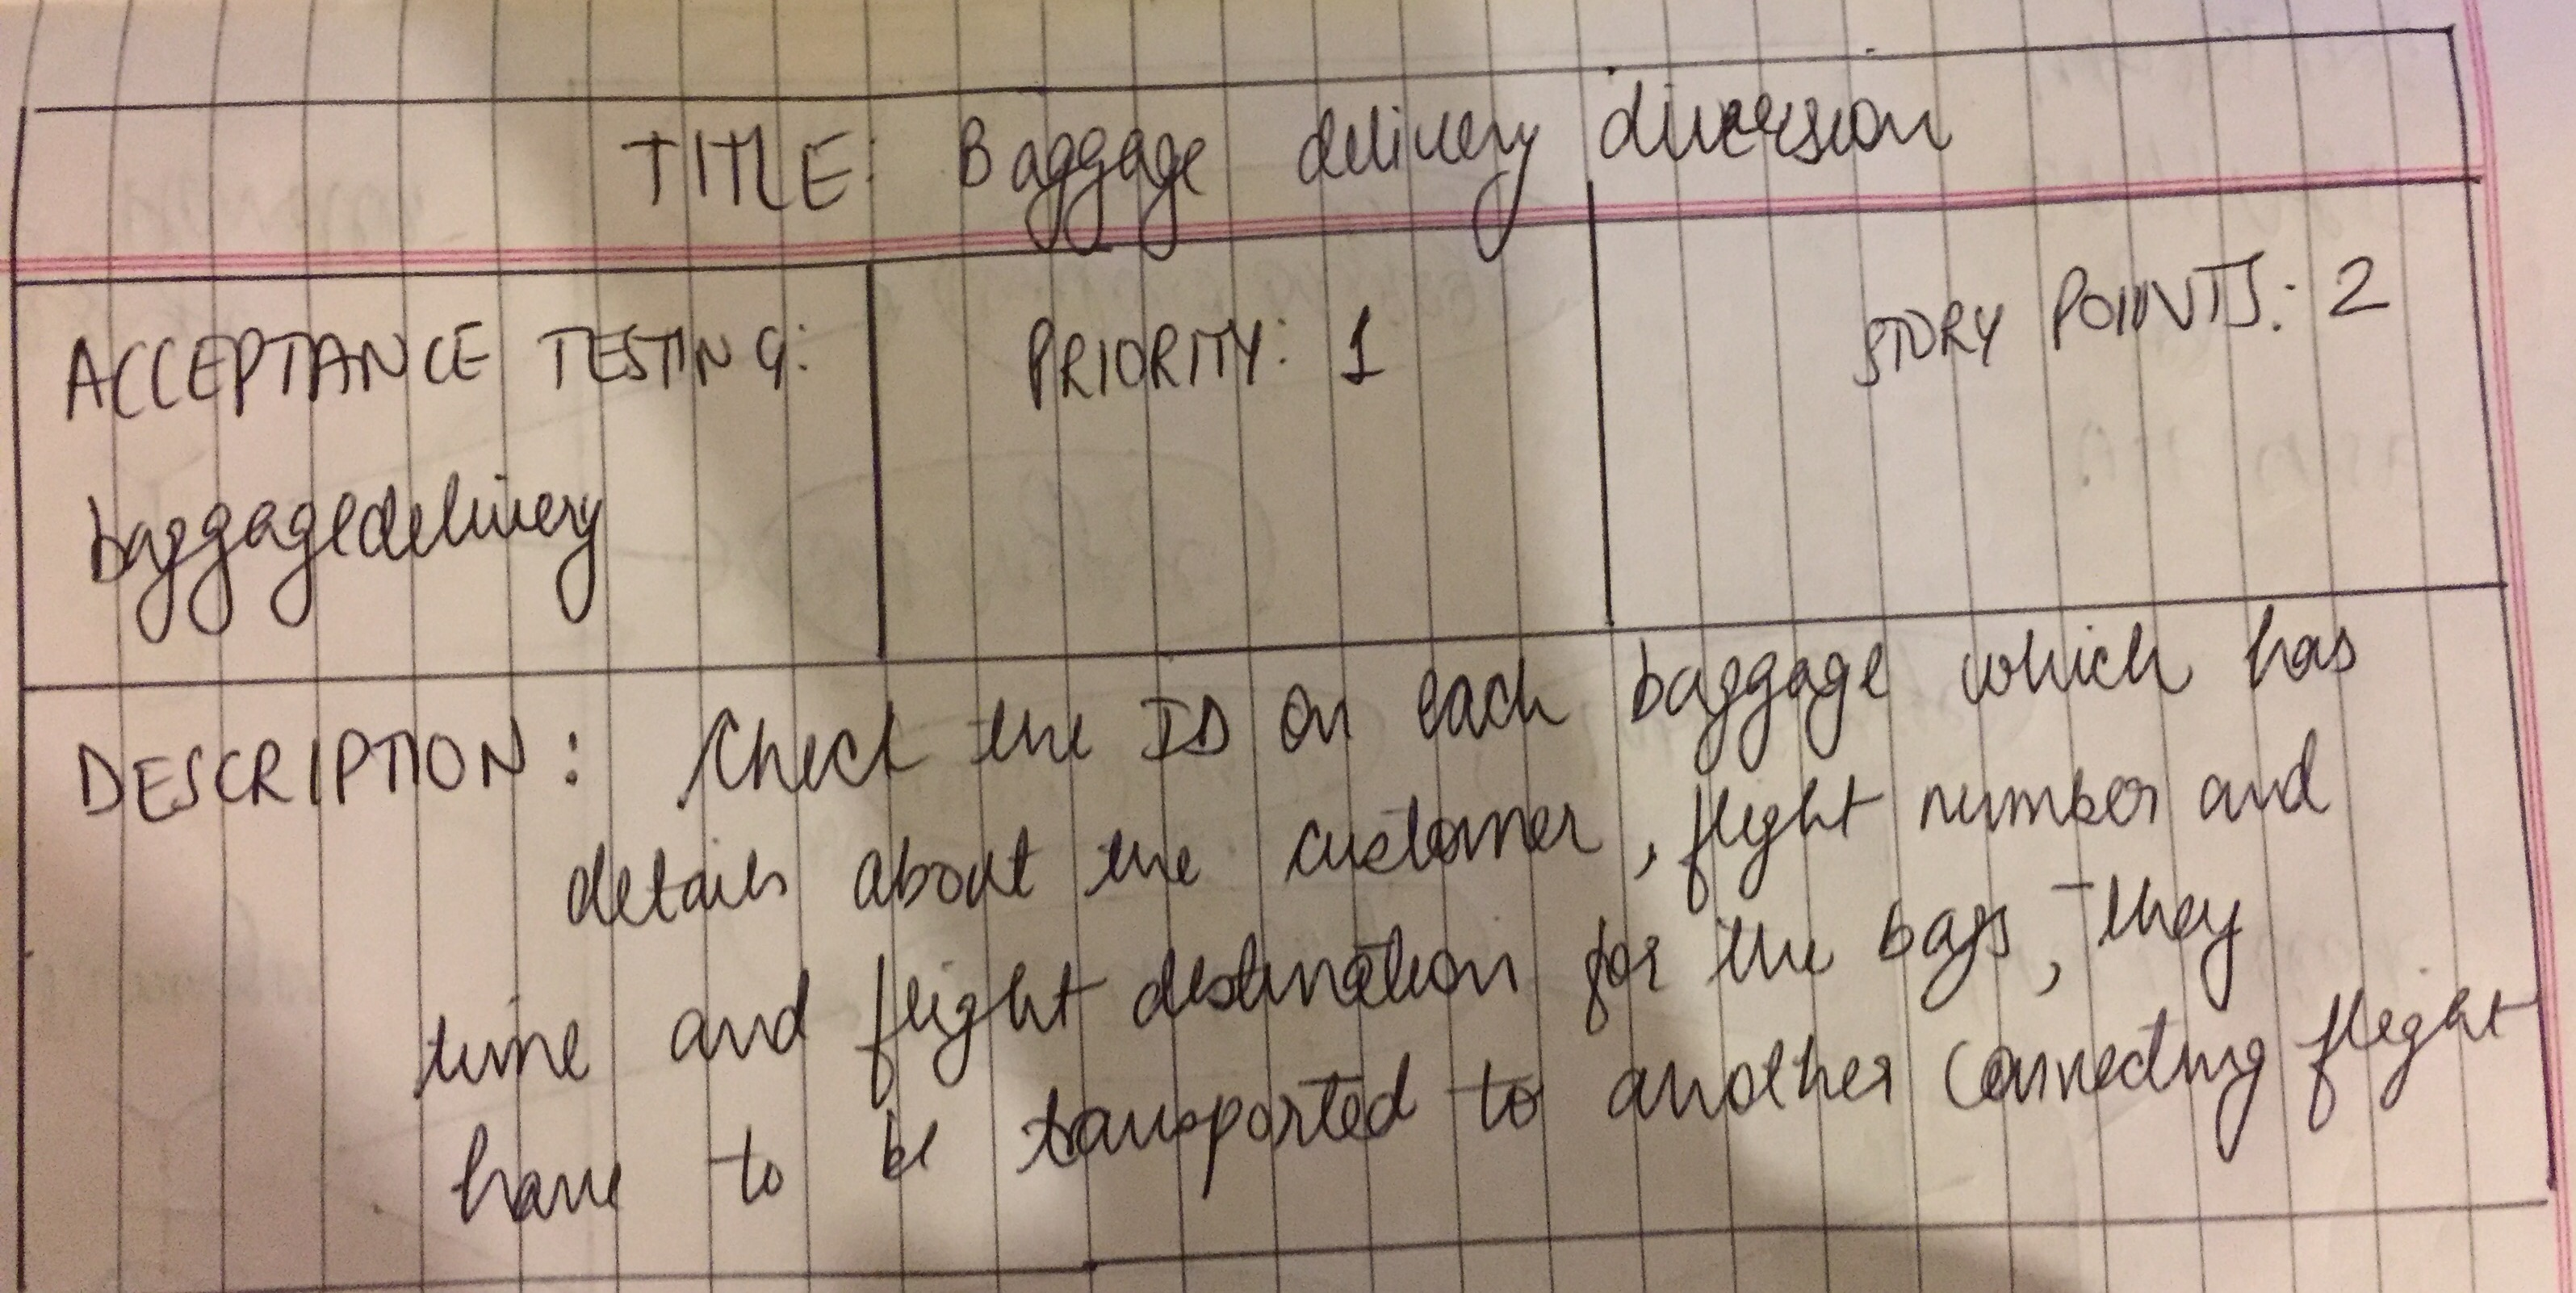 TITLE: Baggage delivery diversion
ACCEPTANCE TESTING:
baggagedelivery
PRIORITY: 1
STORY POINTS: 2
DESCRIPTION: Check the ID on each baggage which has
details about the customer, flight number and
time and flight destination for the bags, they
have to be transported to another connecting flight